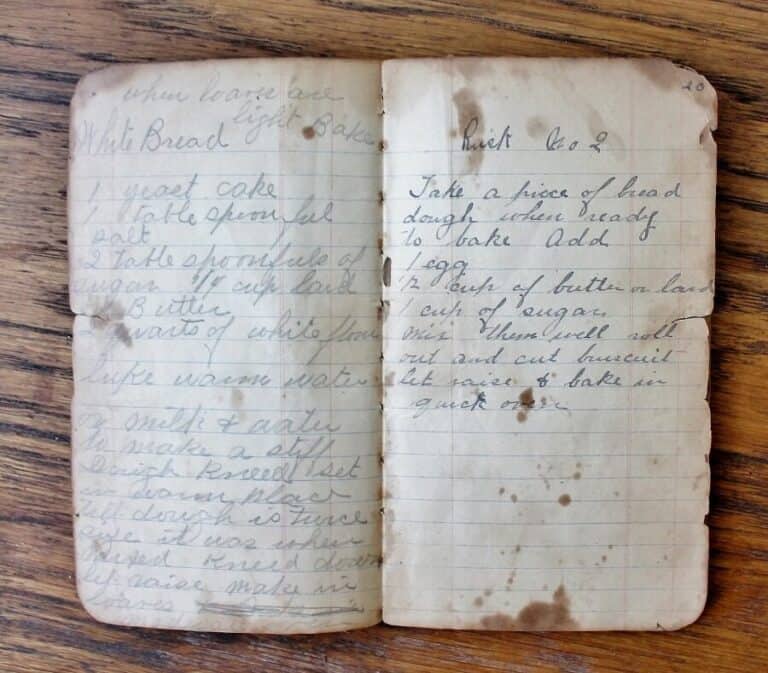 when loaves are
light Bake
White Bread
1 yeast cake
1 table spoonful
salt
2 table spoonfuls of
sugar 1/4 cup lard
or Butter
quarts of white flour
luke warm water
or milk & water
to make a stiff
Dough Kneed set
in warm place
till dough is twice
size it was when
mixed Kneed down
let raise make in
loaves
20
Rusk No 2
Take a piece of bread
dough when ready
to bake Add
1 egg
1/2 cup of butter or lard
1 cup of sugar
mix them well roll
out and cut buiscuit
let raise & bake in
quick oven